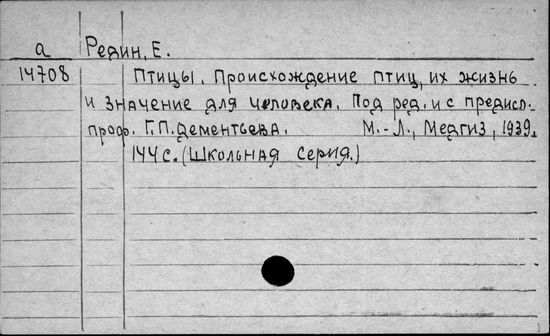 а Редин, Е.
14708 Птицы. Происхождение птиц, их жизнь
и значение для человека. Под ред. и с предисл.
проф. Г.П. Дементьева. М.-Л., Медгиз, 1939.
144 с. (Школьная серия.)